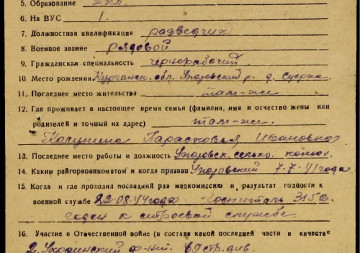 5. Образование 2 кл.
6. На ВУС 1.
7. Должностная квалификация разведчик
8. Военное звание рядовой
9. Гражданская специальность чернорабочий
10. Место рождения Курганск. обл. Упоровский р. д.
11. Последнее место жительства там-же
12. Где проживает в настоящее время семья (фамилия, имя и отчество жены или
родителей и точный их адрес) там-же
Парасковья Ивановна
13. Последнее место работы и должность Упоровск.
14. Каким райгорвоенкоматом и когда призван Упоровский 7.7.41 года
15. Когда и где проходил последний раз медкомиссию и результат годности к
военной службе 22.08.44 года госпиталь 3150
годен к строевой службе
16. Участие в Отечественной войне (в составе какой последней части и в качестве
2 Украинский